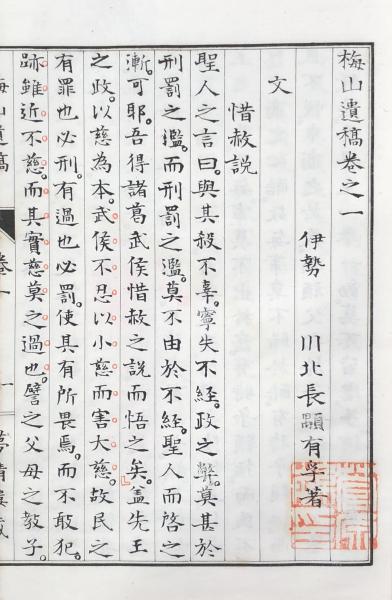 梅山遺稿卷之一
伊勢 川北長顒有孚著
文
惜赦説
聖人之言曰。與其殺不辜。寧失不經。政之弊。莫甚於
刑罰之濫。而刑罰之濫。莫不由於不經。聖人而啓之
漸。可耶。吾得諸葛武侯惜赦之説而悟之矣。蓋先王
之政。以慈為本。武侯不忍以小慈而害大慈。故民之
有罪也必刑。有過也必罰。使其有所畏焉。而不敢犯。
跡雖近不慈。而其實慈莫之過也。譬之父母之教子。
梅山遺稿 卷一 一